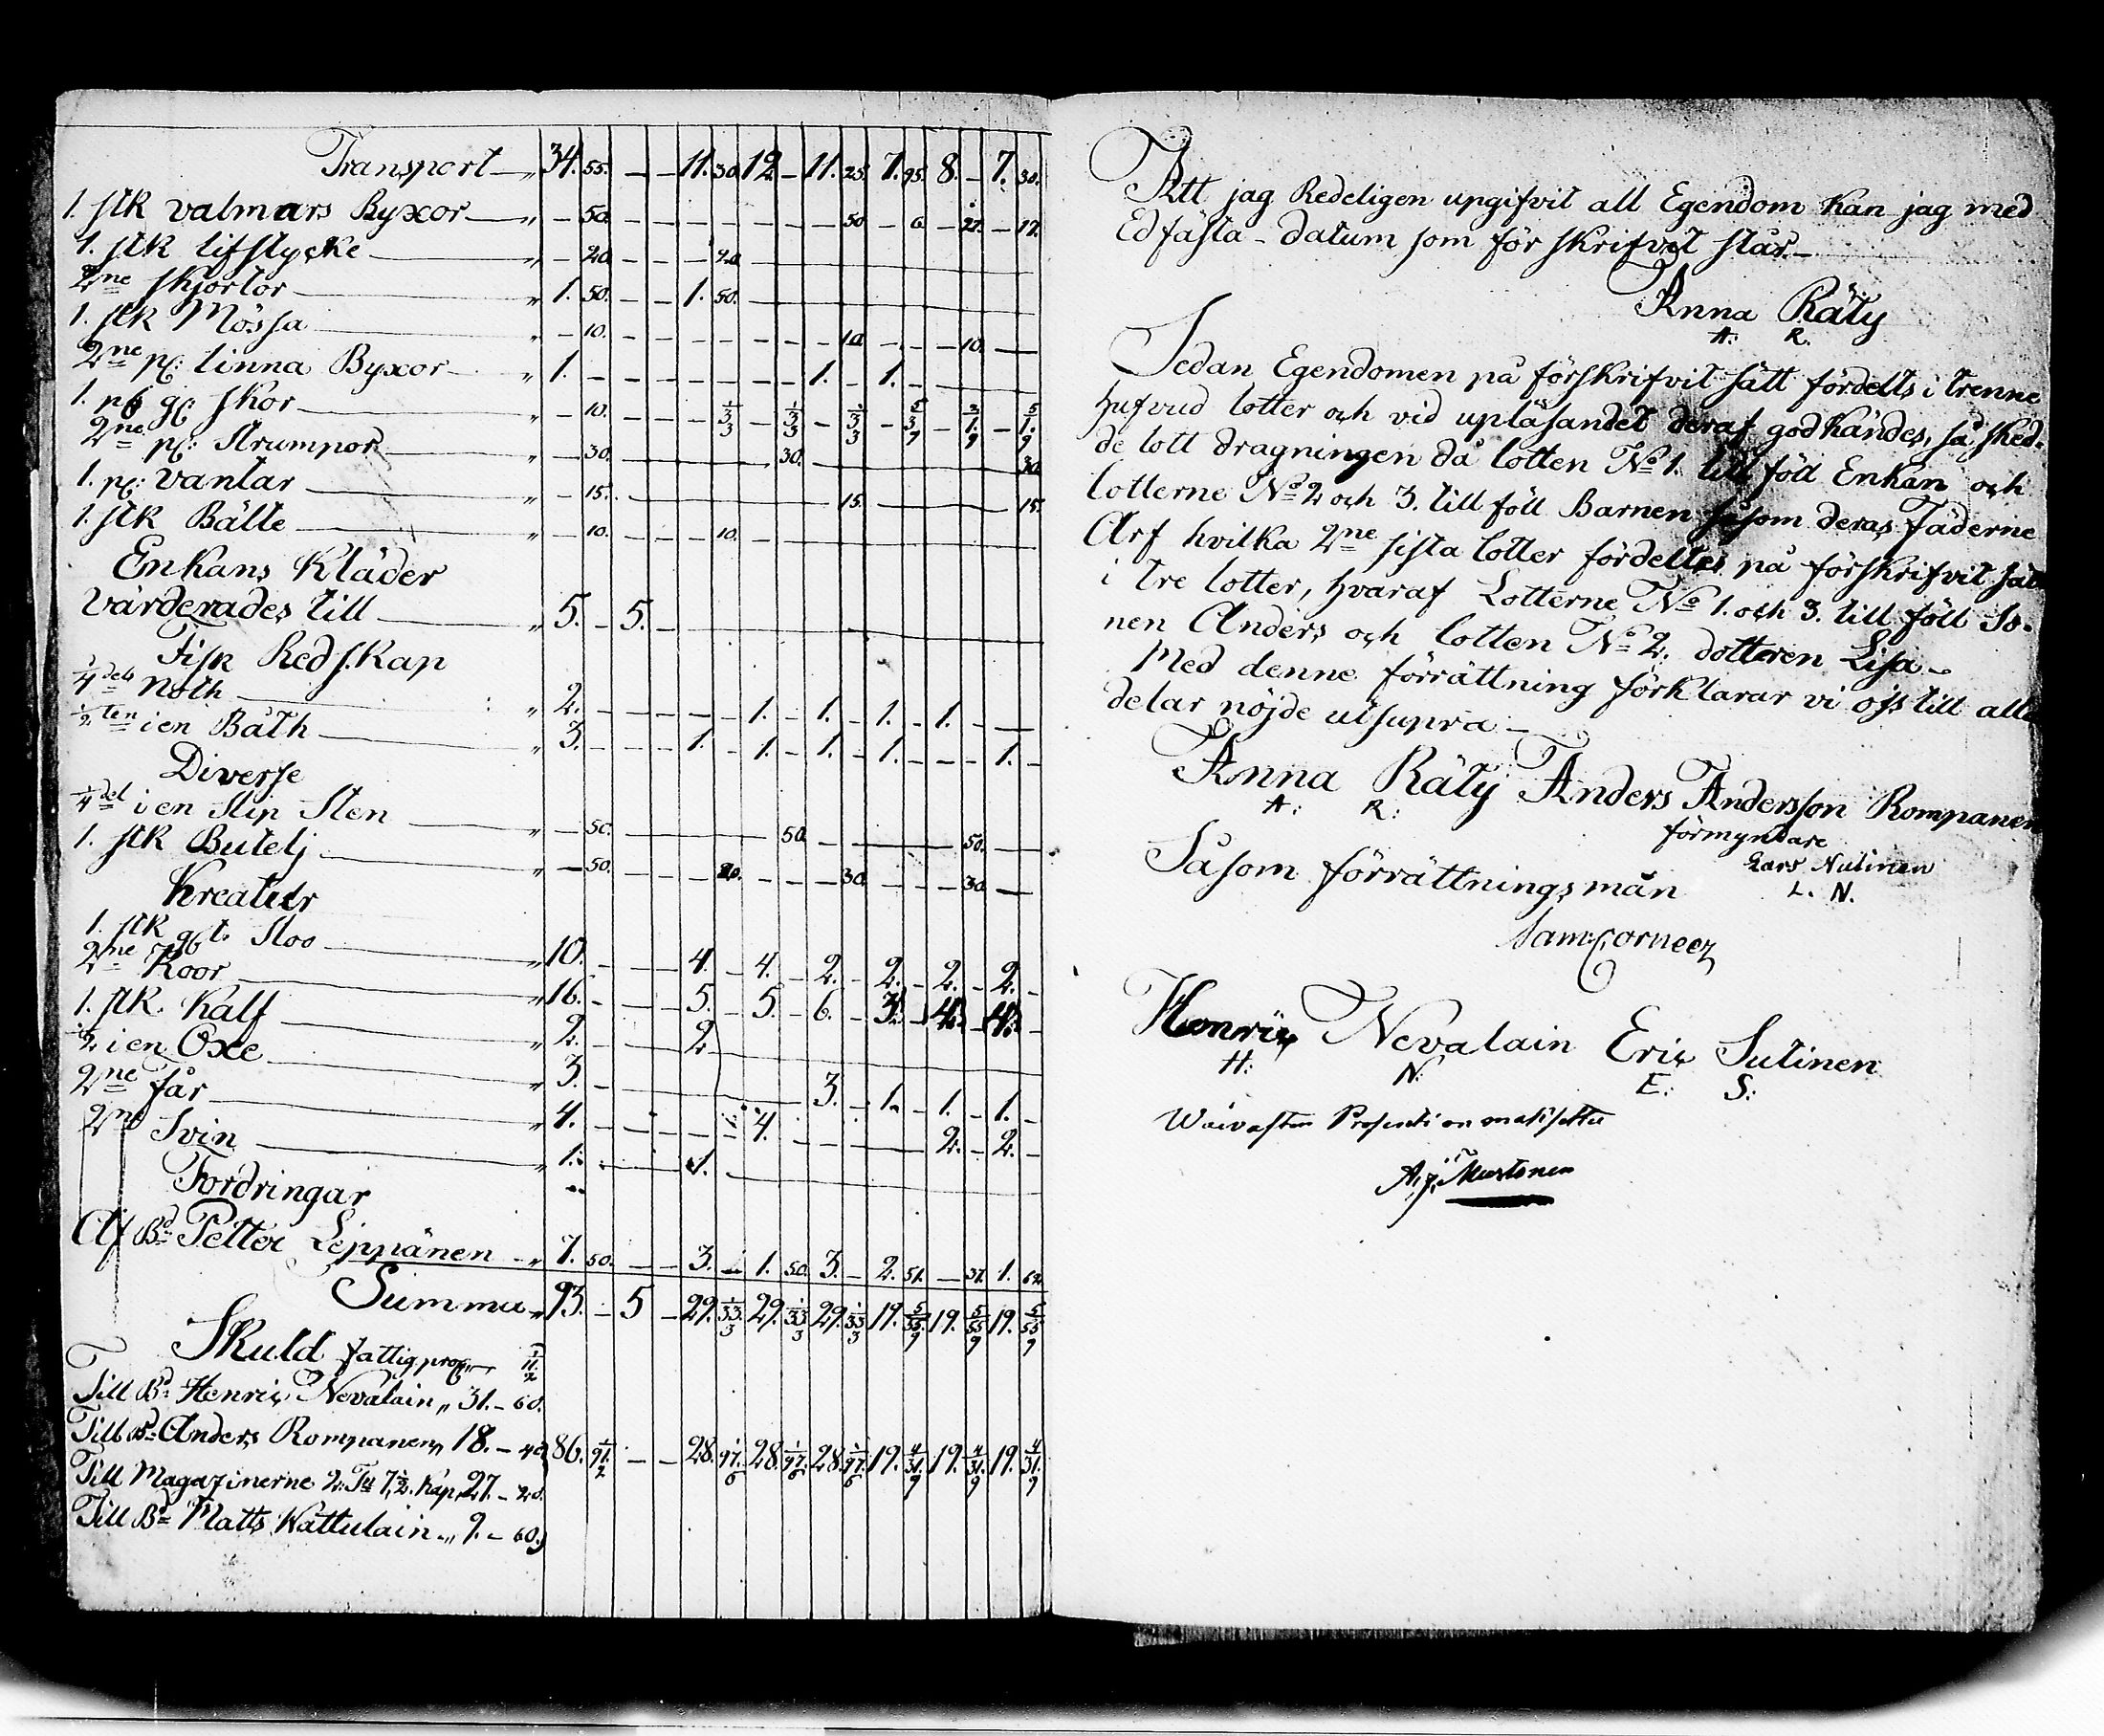 Transport „ 34. 55. – – 11. 30. 12. – 11. 25. 7. 95. 8. – 7. 30.
1. stk valmars Byxor „ – 50. – – – – – – – 50 – 6 – 27. – 17.
1. stk lifstycke „ – 20. – – – 20.
2ne skjortor „ 1. 50. – – 1. 50.
1. stk Mössa „ – 10. – – – – – – – 10. – – – 10. –
2ne p: linna Byxor „ 1. – – – – – – – 1. – 1. –
1. p gl: skor „ – 10.
2ne p: strumpor „ – 30. 30. 30.
1. p: vantar „ – 15. 15. 15.
1. stk Bälte „ – 10. 10.
Enkans Kläder
värderades till „ 5. – 5. –
Fisk Redskap
1/4 dels Noth „ 2. – – – – – 1. – 1. – 1. – 1. – –
1/2 ten i en Båth „ 3. – – – 1. – 1. – 1. – 1. – – – 1. –
Diverse
1/4 del i en Slip Sten „ – 50. 50. 50.
1. stk Butelj „ – 50. – – – 20. – – – 30. – – – 30. –
Kreatur
1. stk Stoo „ 10. – – – 4. – 4. – 2. – 2. – 2. – 2. –
2ne Koor „ 16. – – – 5. – 5. – 6. – 3. – 4. – 4. –
1. stk Kalf „ 2. – – – 2
1/2 i en Oxe „ 3. – 3. – 1. – 1. – 1. –
2ne får „ 4. – – – – – 4. – – – – – 2. – 2. –
2ne Svin „ 1. 1.
Fordringar
Af Bd Petter Leppänen „ 7. 50. – – 3. – 1. 50. 3. – 2. 51. – 37. 1. 62
Summa „ 93. – 5 – 29. 33 1/3 29. 33 1/3 29. 33 1/3 19. 55 5/9 19. 55 5/9 19. 55 5/9
Skuld fattig proc. 11 1/2
Till Bd Henric Nevalain „ 31. – 60.
Till Bd Anders Rompanen „ 18. – 40 86. 91 1/2 – – 28. 97 1/6 28. 97 1/6 28. 97 1/6 19. 31 4/9 19. 31 4/9 19. 31 4/9
Till Magazinerne 2. Tu 7 1/2 Kap. 27. – 20.
Till Bd Matts Wattulain „ 9. – 60.
Att jag Redeligen upgifvit all Egendom kan jag med
Ed fästa – datum som för skrifvet står. –
Anna Räty
A: R.
Sedan Egendomen på förskrifvit sätt fördelts i trenne
hufvud lotter och vid upläsandet deraf godkändes, så sked-
de lott dragningen då lotten No 1. till föll Enkan och
lotterne No 2 och 3. till föll Barnen såsom deras Fäderne
Arf hvilka 2ne sista lotter fördeltes på förskrifvit sätt
i tre lotter, hvaraf Lotterne No 1. och 3. till föll So-
nen Anders och lotten No 2. dotteren Lisa –
Med denne förrättning förklarar vi oss till alla
delar nöjde utsupra –
Anna Räty Anders Andersson Rompanen
A: R:
förmyndare
Lars Nulinen
L. N.
Såsom förrättningsmän
Sam: Corneer
Henric Nevalain Eric Sutinen
H: N: E: S:
A. J. Mustonen